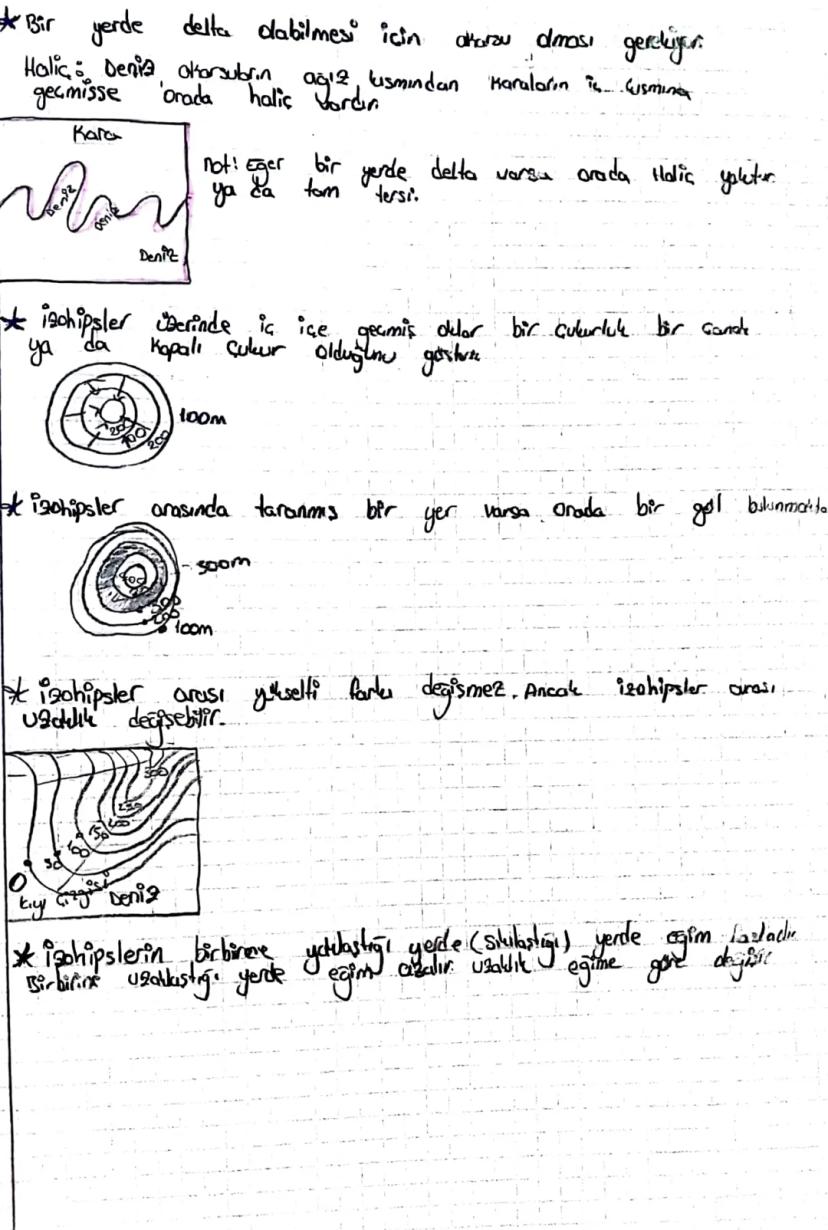 * Bir yerde delta olabilmesi için akarsu olması gerekiyor.
Haliç: Deniz akarsubrın ağız kısmından karaların iç kısmına
geçmişse orada haliç vardır.
Kara
not! Eğer bir yerde delta varsa orada Haliç yoktur
ya da tam tersi.
Deniz
Deniz
Deniz
* izohipsler üzerinde iç içe geçmiş oklar bir çukurluk bir çanak
ya da kapalı çukur olduğunu gösterir
100m
100
200
* izohipsler arasında taranmış bir yer varsa orada bir göl bulunmakta
300m
400
300
200
100m
* izohipsler arası yükselti farkı değişmez. Ancak izohipsler arası
uzaklık değişebilir.
300
250
200
150
100
50
0
Kıyı Çizgisi Deniz
* izohipslerin birbirine yaklaştığı yerde (sıkılaştığı) yerde eğim fazladır
Birbirine uzaklaştığı yerde eğim azalır. uzaklık eğime göre değişir